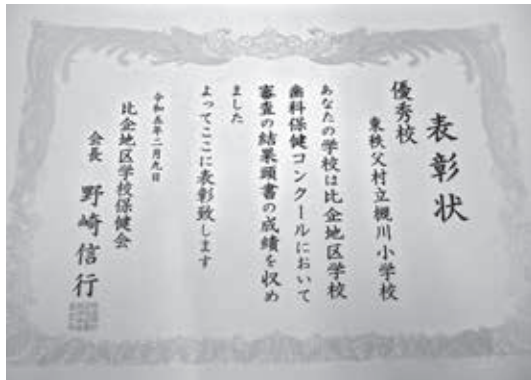 表彰状
優秀校
東秩父村立槻川小学校
あなたの学校は比企地区学校
歯科保健コンクールにおいて
審査の結果頭書の成績を収め
ました
よってここに表彰致します
令和五年二月九日
比企地区学校保健会
会長 野崎信行